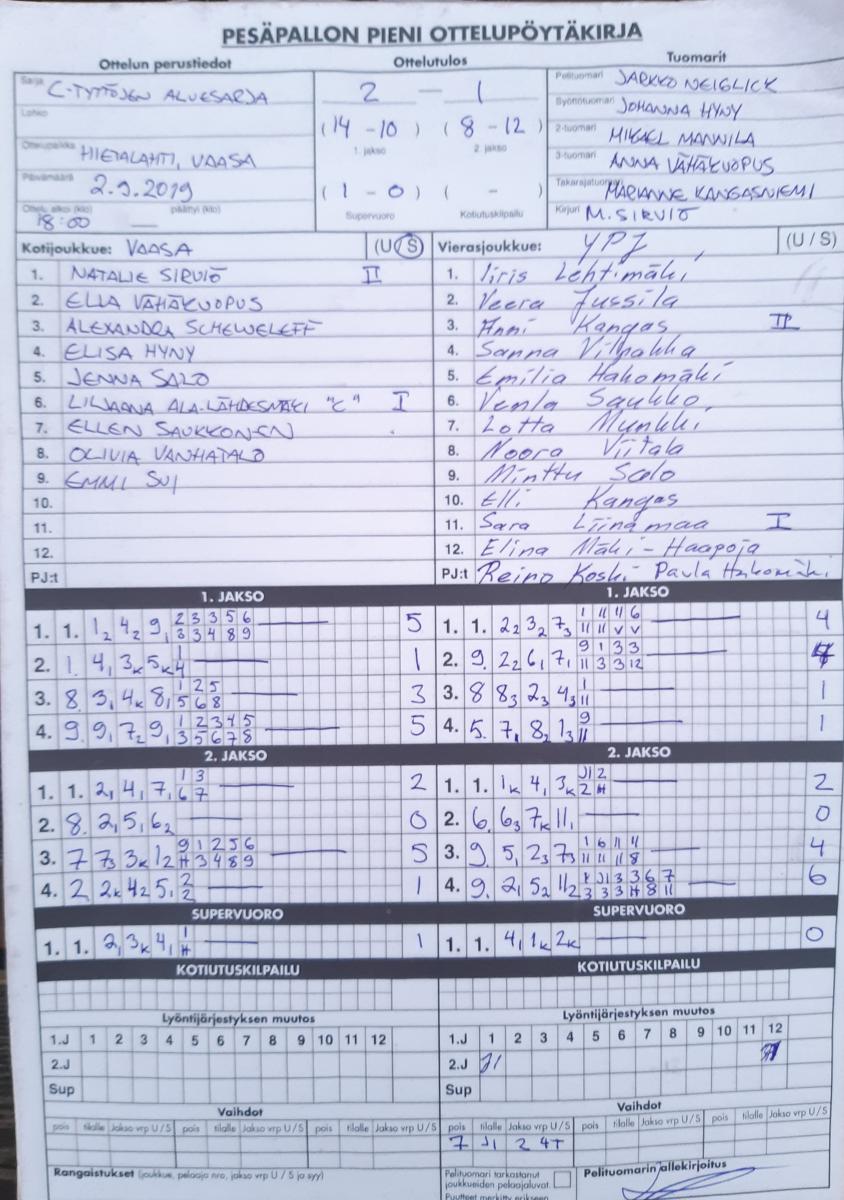 PESÄPALLON PIENI OTTELUPÖYTÄKIRJA
Ottelun perustiedot
Sarja C-TYTTÖJEN ALUESARJA
Lohko
Ottelupaikka HIETALAHTI, VAASA
Päivämäärä 2.9.2019
Ottelu alkoi (klo) 18:00 päättyi (klo)
Ottelutulos
2 - 1
(14-10) (8-12)
1. jakso 2. jakso
(1-0) ( - )
Supervuoro Kotiutuskilpailu
Tuomarit
Pelituomari JARKKO NEIGLICK
Syöttötuomari JOHANNA HYNY
2-tuomari MIKAEL MANNILA
3-tuomari ANNA VÄHÄKUOPUS
Takarajatuomari MARIANNE KANGASNIEMI
Kirjuri M. SIRVIÖ
Kotijoukkue: VAASA (U/S)
1. NATALIE SIRVIÖ II
2. ELLA VÄHÄKUOPUS
3. ALEXANDRA SCHEWELEFF
4. ELISA HYNY
5. JENNA SALO
6. LILJAANA ALA-LÄHDESMÄKI "C" I
7. ELLEN SAUKKONEN
8. OLIVIA VANHATALO
9. EMMI SUI
10.
11.
12.
PJ:t
Vierasjoukkue: YPJ (U / S)
1. Iiris Lehtimäki
2. Veera Jussila
3. Anni Kangas II
4. Sanna Vilpakka
5. Emilia Hakomäki
6. Venla Saukko
7. Lotta Munkki
8. Noora Viitala
9. Minttu Salo
10. Elli Kangas
11. Sara Liinamaa I
12. Elina Mäki-Haapoja
PJ:t Reino Koski Paula Hakomäki
1. JAKSO
1. 1. 1₂ 4₂ 9₁ 2 3 3 5 6 5
3 3 4 8 9
2. 1. 4₁ 3k 5k 1 1
4
3. 8. 3₁ 4k 8₁ 1 2 5 3
5 6 8
4. 9. 9₁ 7₂ 9₁ 1 2 3 4 5 5
3 5 6 7 8
1. JAKSO
1. 1. 2₂ 3₂ 7₃ 1 11 4 6 4
11 11 v v
2. 9. 2₂ 6₁ 7₁ 9 1 3 3 4
11 3 3 12
3. 8 8₃ 2₃ 4₃ 1 1
11
4. 5. 7₁ 8₂ 1₃ 9 1
11
2. JAKSO
1. 1. 2₁ 4₁ 7₁ 1 3 2
6 7
2. 8. 2₁ 5₁ 6₂ 0
3. 7 7₃ 3k 1₂ 9 1 2 5 6 5
H 3 4 8 9
4. 2 2k 4₂ 5₁ 2 1
2
2. JAKSO
1. 1. 1k 4₁ 3k J1 2 2
2 H
2. 6. 6₃ 7k 11₁ 0
3. 9 5₁ 2₃ 7₃ 1 6 11 11 4
11 11 11 8
4. 9. 2₁ 5₂ 11₂ k J1 3 3 6 7 6
3 3 3 H 8 11
SUPERVUORO
1. 1. 2₁ 3k 4₁ 1 1
H
SUPERVUORO
1. 1. 4₁ 1k 2k 0
KOTIUTUSKILPAILU
KOTIUTUSKILPAILU
Lyöntijärjestyksen muutos
1.J 1 2 3 4 5 6 7 8 9 10 11 12
2.J
Sup
Lyöntijärjestyksen muutos
1.J 1 2 3 4 5 6 7 8 9 10 11 12
2.J J1
Sup
Vaihdot
pois tilalle Jakso vrp U/S pois tilalle Jakso vrp U/S pois tilalle Jakso vrp U/S
Vaihdot
pois tilalle Jakso vrp U/S pois tilalle Jakso vrp U/S pois tilalle Jakso vrp U/S
7 J1 2 4T
Rangaistukset (joukkue, pelaaja nro, jakso vrp U / S ja syy)
Pelituomari tarkastanut
joukkueiden pelaajaluvat.
Puutteet merkitty erikseen
Pelituomarin allekirjoitus